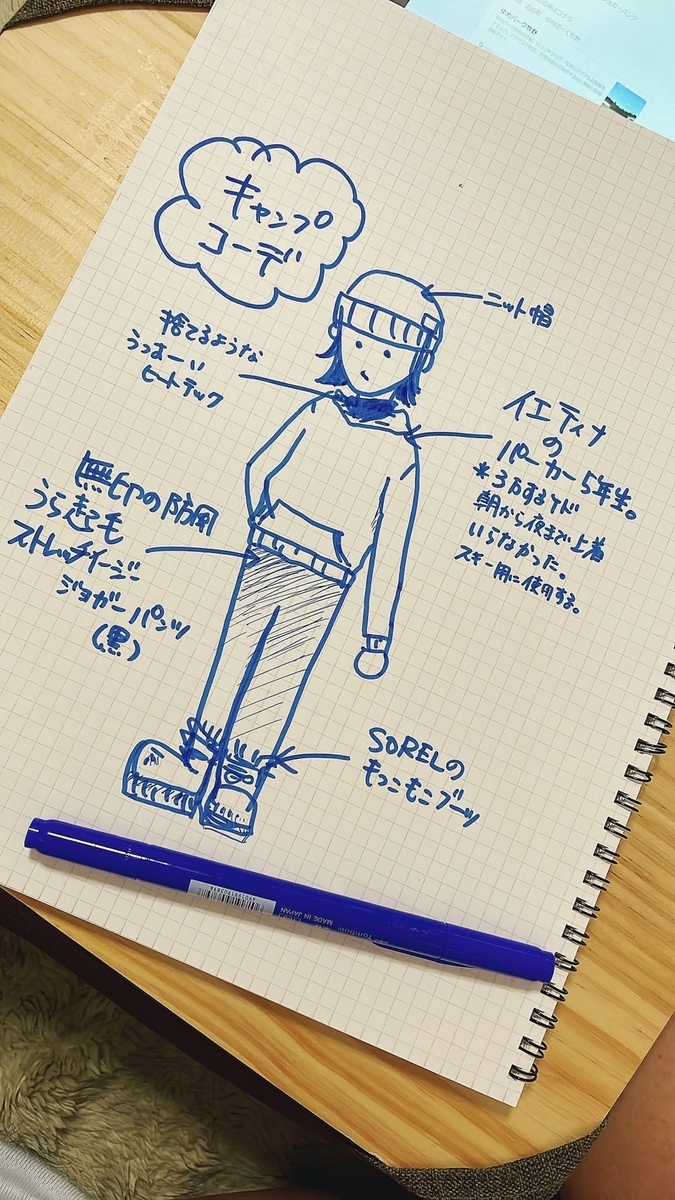 キャンプ
コーデ
ニット帽
捨てるような
うっすーい
ヒートテック
イエティナ
の
パーカー5年生。
*3万するケド
朝から夜まで上着
いらなかった。
スキー用に使用する。
無印の防風
うら起毛
ストレッチイージー
ジョガーパンツ
(黒)
SORELの
もっこもこブーツ
Tombow
MADE IN JAPAN